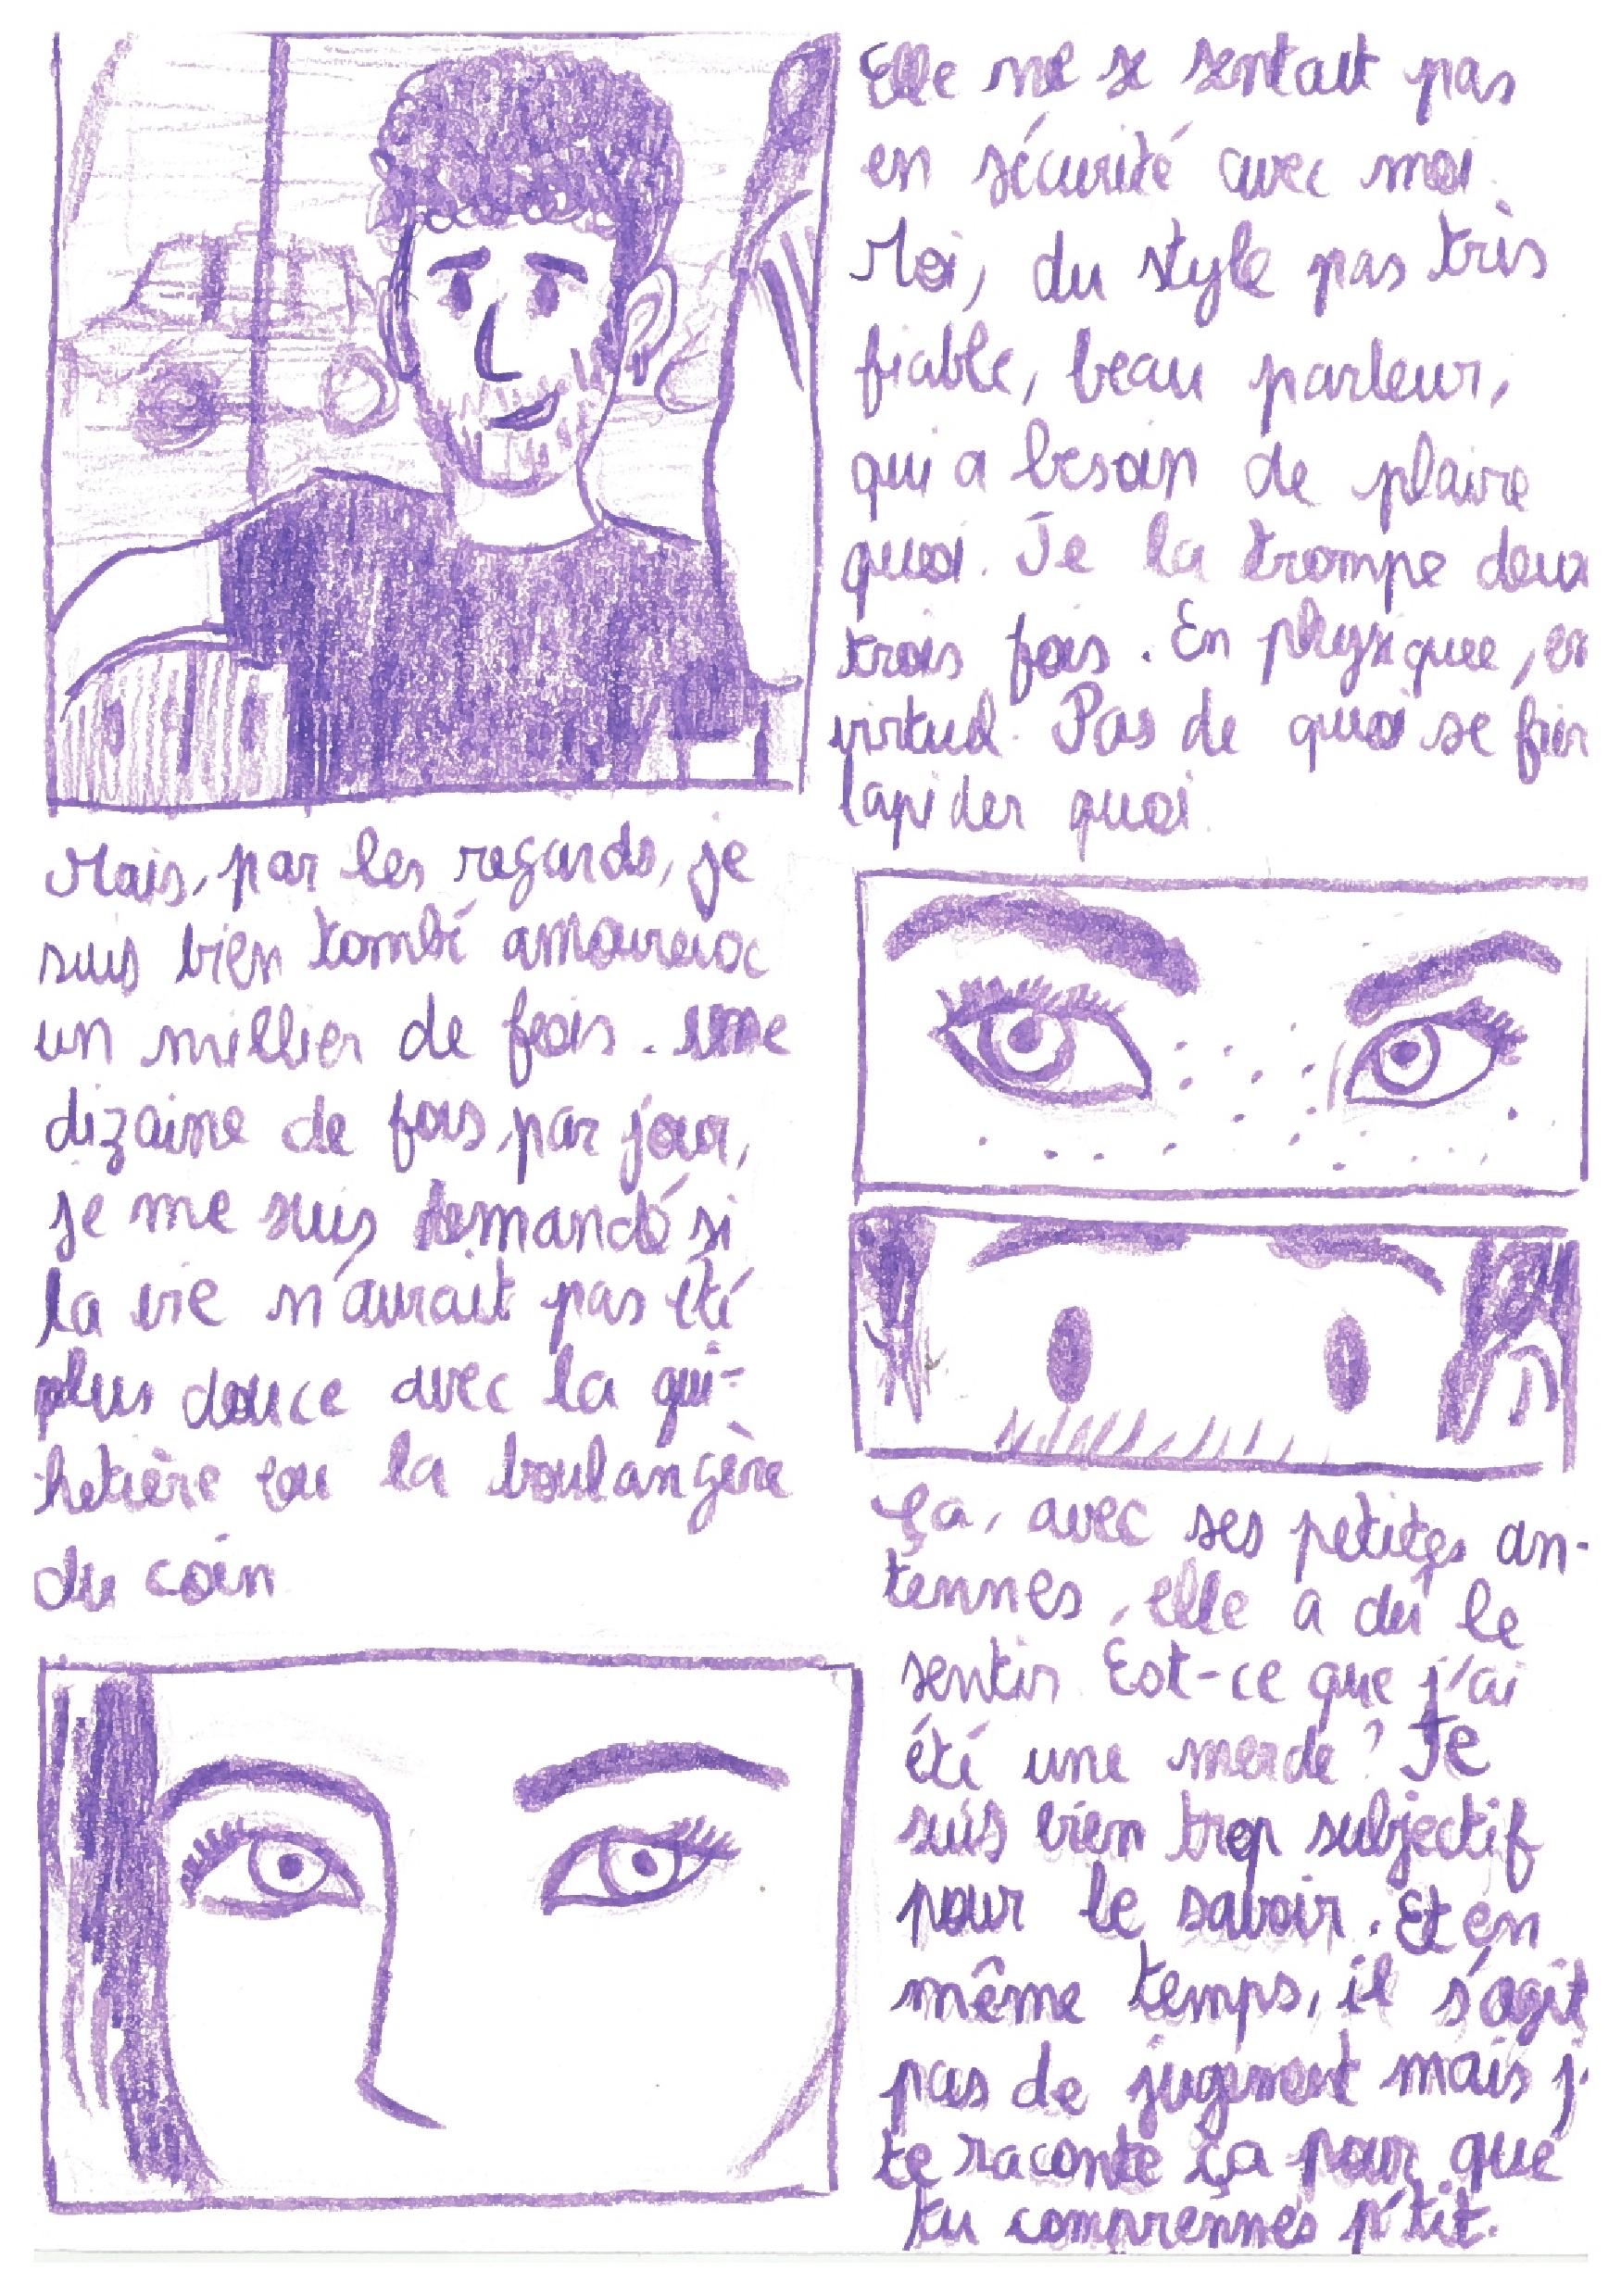 Elle ne se sentait pas
en sécurité avec moi.
Moi, du style pas très
fiable, beau parleur,
qui a besoin de plaire
quoi. Je la trompe deux
trois fois. En physique, en
virtuel. Pas de quoi se fier
lapider quoi.
Mais, par les regards, je
suis bien tombé amoureux
un millier de fois. Une
dizaine de fois par jour,
je me suis demandé si
la vie n'aurait pas été
plus douce avec la gui-
hetière ou la boulangère
du coin
Ça, avec ses petites an-
tennes, elle a dû le
sentir. Est-ce que j'ai
été une merde? Je
suis bien trop subjectif
pour le savoir. Et en
même temps, il s'agit
pas de jugement mais j'
te raconte ça pour que
tu comprennes p'tit.